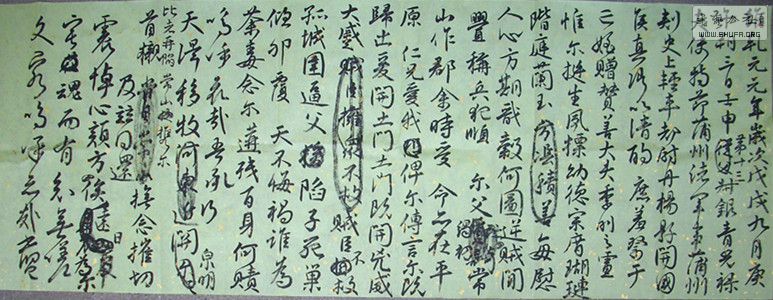 維乾元元年歲次戊戌九月庚
午朔三日壬申第十三叔銀青光祿
夫使持節蒲州諸軍事蒲州
刺史上輕車都尉丹楊縣開國
侯真卿以清酌庶羞祭于
亡姪贈贊善大夫季明之靈
惟爾挺生夙標幼德宗廟瑚璉
階庭蘭玉方憑積善每慰
人心方期戩穀何圖逆賊間
釁稱兵犯順爾父竭誠常
山作郡余時受命亦在平
原仁兄愛我俾爾傳言爾既
歸止爰開土門土門既開兇威
大蹙賊臣擁眾不救賊臣不救
孤城圍逼父陷子死巢
傾卵覆天不悔禍誰為
荼毒念爾遘殘百身何贖
嗚呼哀哉吾承泉明
天澤移牧河東近河關
比者再陷常山攜爾
首櫬
及茲同還撫念摧切
震悼心顏方俟遠日
爾之
宅魂而有知無嗟
久客嗚呼哀哉尚饗
WWW.BHUFA.ORG